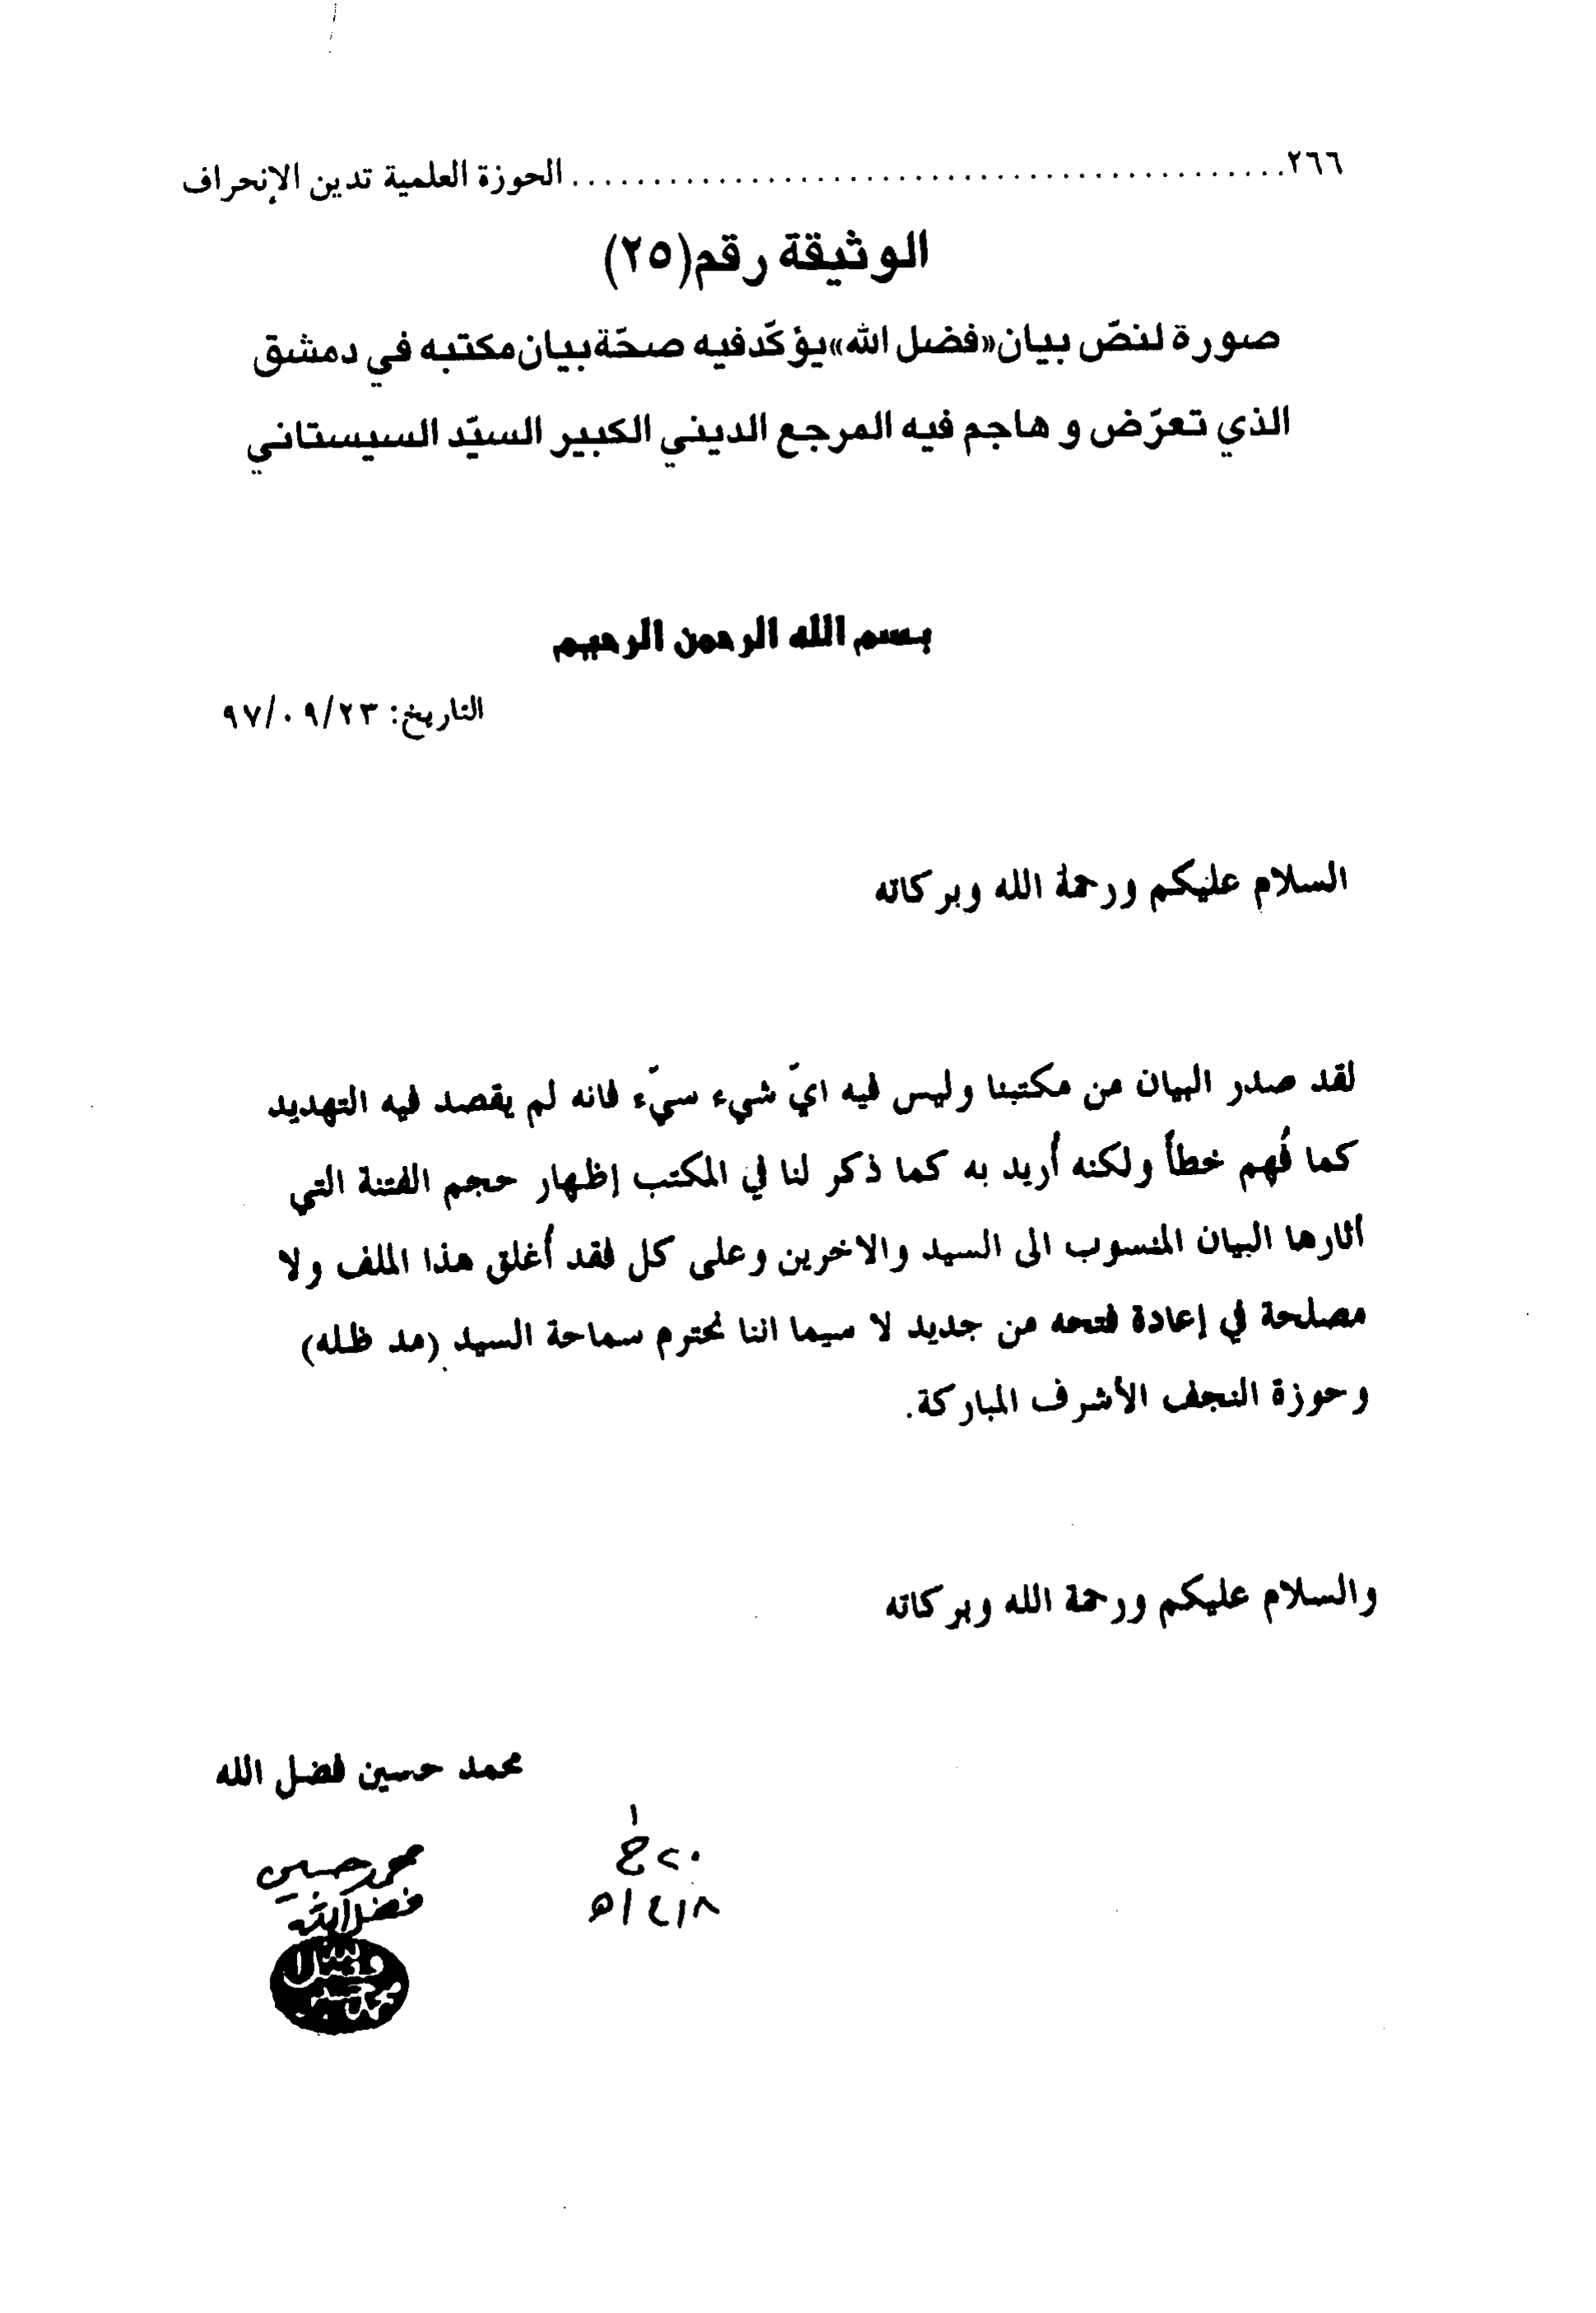 ٢٦٦ ........................................ الحوزة العلمية تدين الإنحراف
الوثيقة رقم(٢٥)
صورة لنصّ بيان«فضل الله»يؤكّدفيه صحّةبيان‌مكتبه في دمشق
الذي تعرّض و هاجم فيه المرجع الديني الكبير السيّد السيستاني
بسم الله الرحمن الرحيم
التاريخ: ٩٧/٠٩/٢٣
السلام عليكم ورحمة الله وبركاته
لقد صدر البيان من مكتبنا وليس فيه ايّ شيء سيّء فانه لم يقصد فيه التهديد
كما فُهم خطأ ولكنه أُريد به كما ذكر لنا في المكتب إظهار حجم الفتنة التي
اثارها البيان المنسوب الى السيد والاخرين وعلى كل فقد أُغلق هذا الملف ولا
مصلحة في إعادة فتحه من جديد لا سيما اننا نحترم سماحة السيد (مد ظله)
وحوزة النجف الأشرف المباركة.
والسلام عليكم ورحمة الله وبركاته
محمد حسين فضل الله
٢٠ ج ١
١٤١٨ ه
محمد حسين
فضل الله